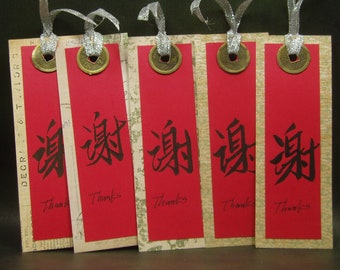 谢
Thanks
谢
Thanks
谢
Thanks
谢
Thanks
谢
Thanks